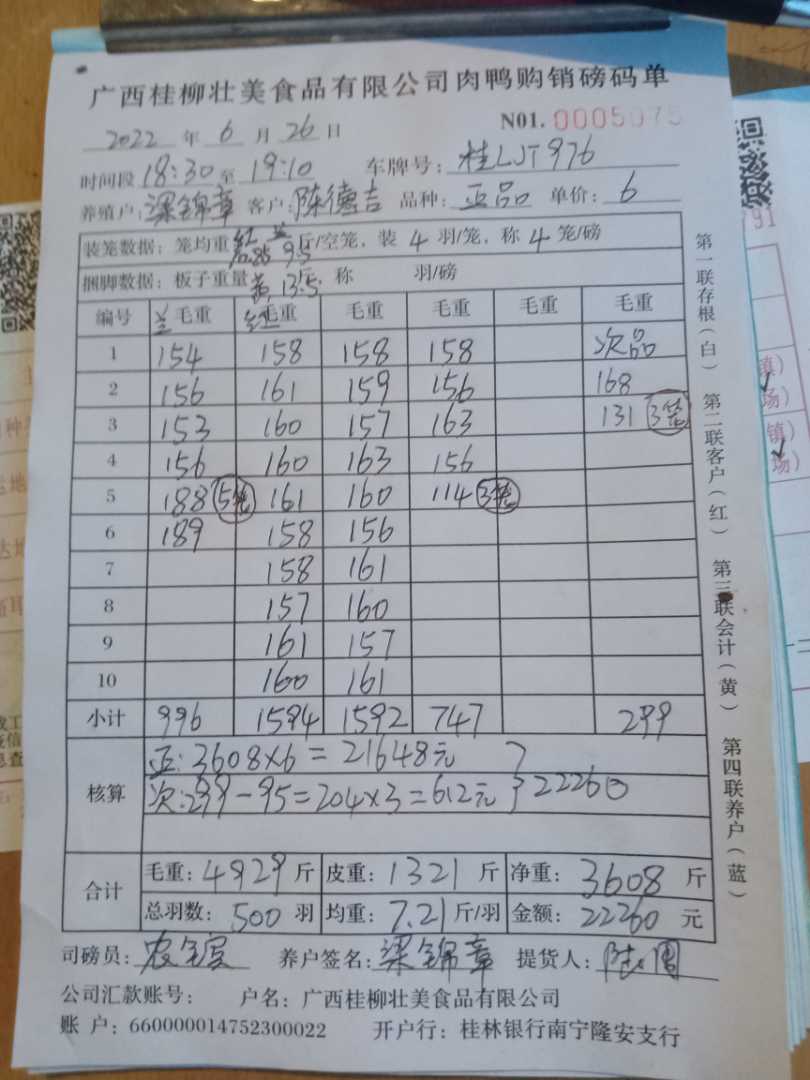 广西桂柳壮美食品有限公司肉鸭购销磅码单
2022 年 6 月 26 日 N01. 0005075
时间段 18:30 至 19:10 车牌号: 桂LJT976
养殖户: 梁锦章 客户: 陈德吉 品种: 正品 单价: 6
装笼数据: 笼均重 红 兰 9.5 斤/空笼, 装 4 羽/笼, 称 4 笼/磅
捆脚数据: 板子重量 黄 13.5 斤, 称 羽/磅
编号 兰 毛重 红 毛重 毛重 毛重 毛重 毛重
1 154 158 158 158 次品
2 156 161 159 156 168
3 153 160 157 163 131 3笼
4 156 160 163 156
5 188 5笼 161 160 114 3笼
6 189 158 156
7 158 161
8 157 160
9 161 157
10 160 161
小计 996 1594 1592 747 299
核算 正: 3608×6=21648元
次: 299-95=204×3=612元 } 22260
合计 毛重: 4929 斤 皮重: 1321 斤 净重: 3608 斤
总羽数: 500 羽 均重: 7.21 斤/羽 金额: 22260 元
司磅员: 养户签名: 梁锦章 提货人:
公司汇款账号: 户名: 广西桂柳壮美食品有限公司
账 户: 660000014752300022 开户行: 桂林银行南宁隆安支行
第一联存根(白) 第二联客户(红) 第三联会计(黄) 第四联养户(蓝)
791
镇)
场)
镇)
场)